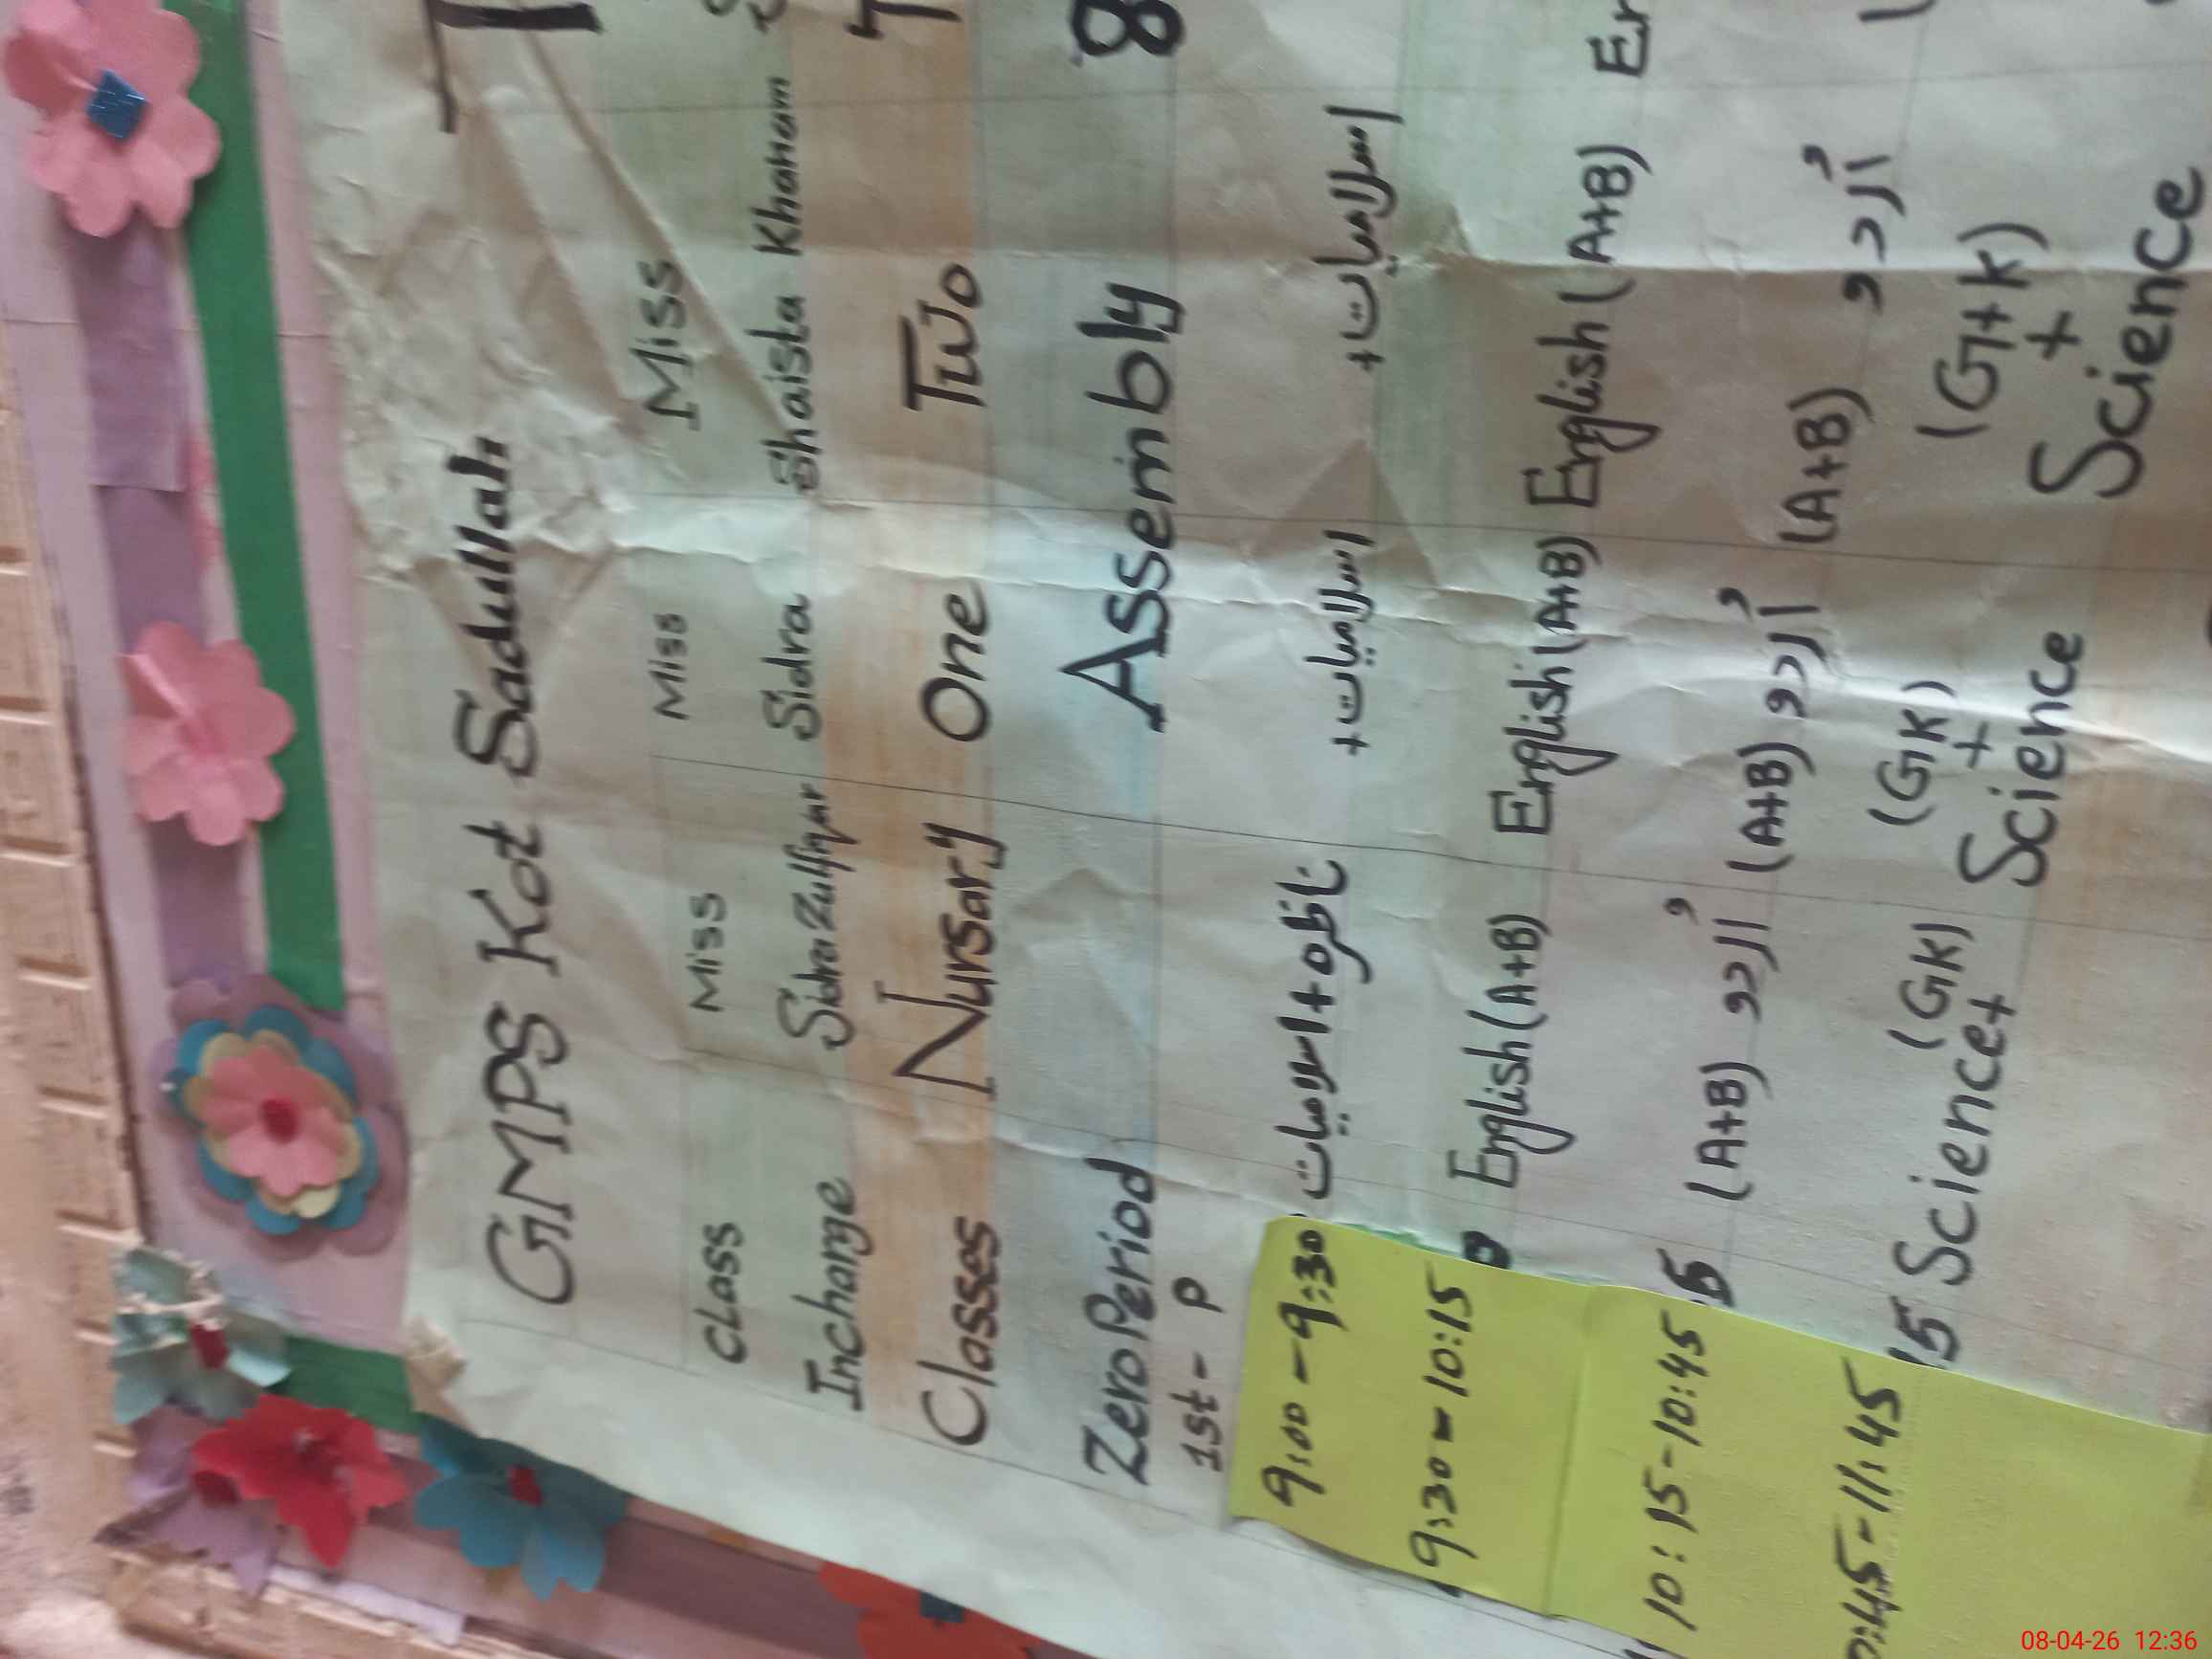 GMPS Kot Sadullah T
Miss Miss Miss
Class
Incharge Sidra Zulfiqar Sidra Shaista Khanam
Classes Nursary One Two T
Zero Period Assembly 8
1st - P
9:00 - 9:30 ناظرہ + اسلامیات اسلامیات + اسلامیات +
9:30 - 10:15 English (A+B) English (A+B) English (A+B) En
10:15 - 10:45 5 اُردو (A+B) اُردو (A+B) اُردو (A+B)
(GK) (GK) (G+K)
:45 - 11:45 15 Science+ + +
Science Science
08-04-26 12:36